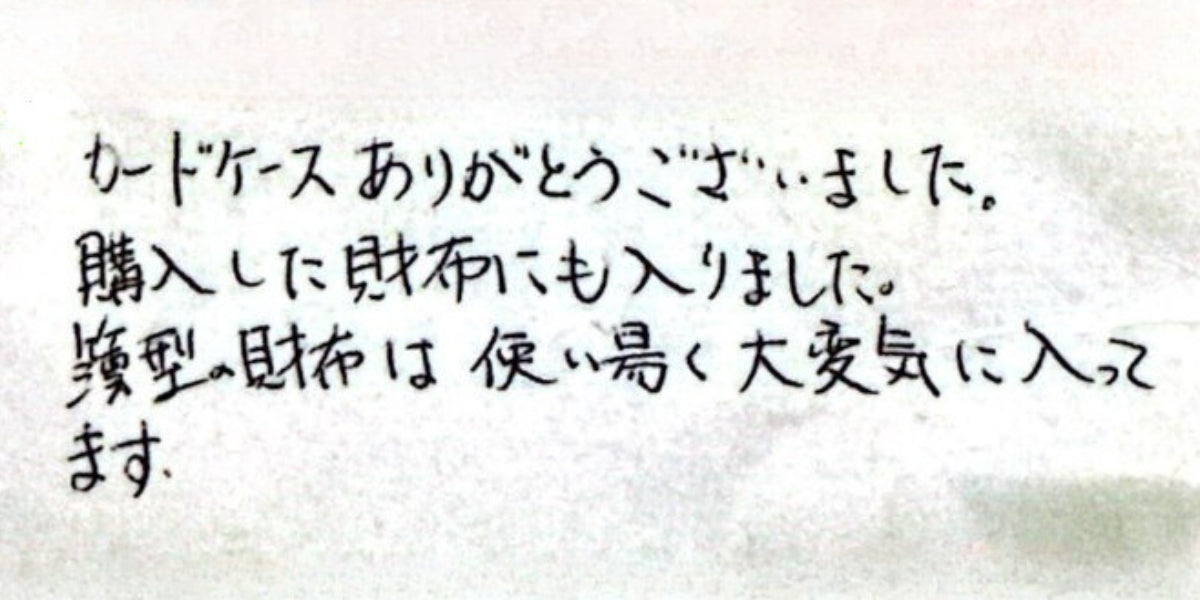 カードケースありがとうございました。
購入した財布にも入りました。
薄型の財布は使い易く大変気に入って
ます.